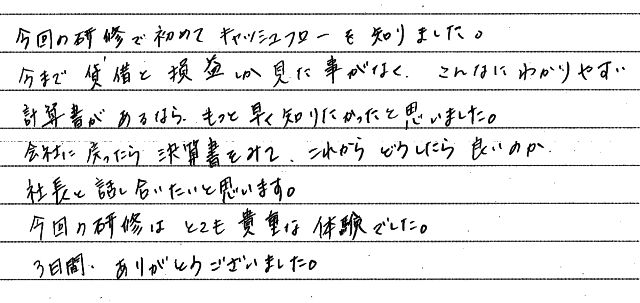 今回の研修で初めてキャッシュフローを知りました。
今まで貸借と損益しか見た事がなく、こんなにわかりやすい
計算書があるなら、もっと早く知りたかったと思いました。
会社に戻ったら決算書をみて、これからどうしたら良いのか
社長と話し合いたいと思います。
今回の研修はとても貴重な体験でした。
3日間、ありがとうございました。